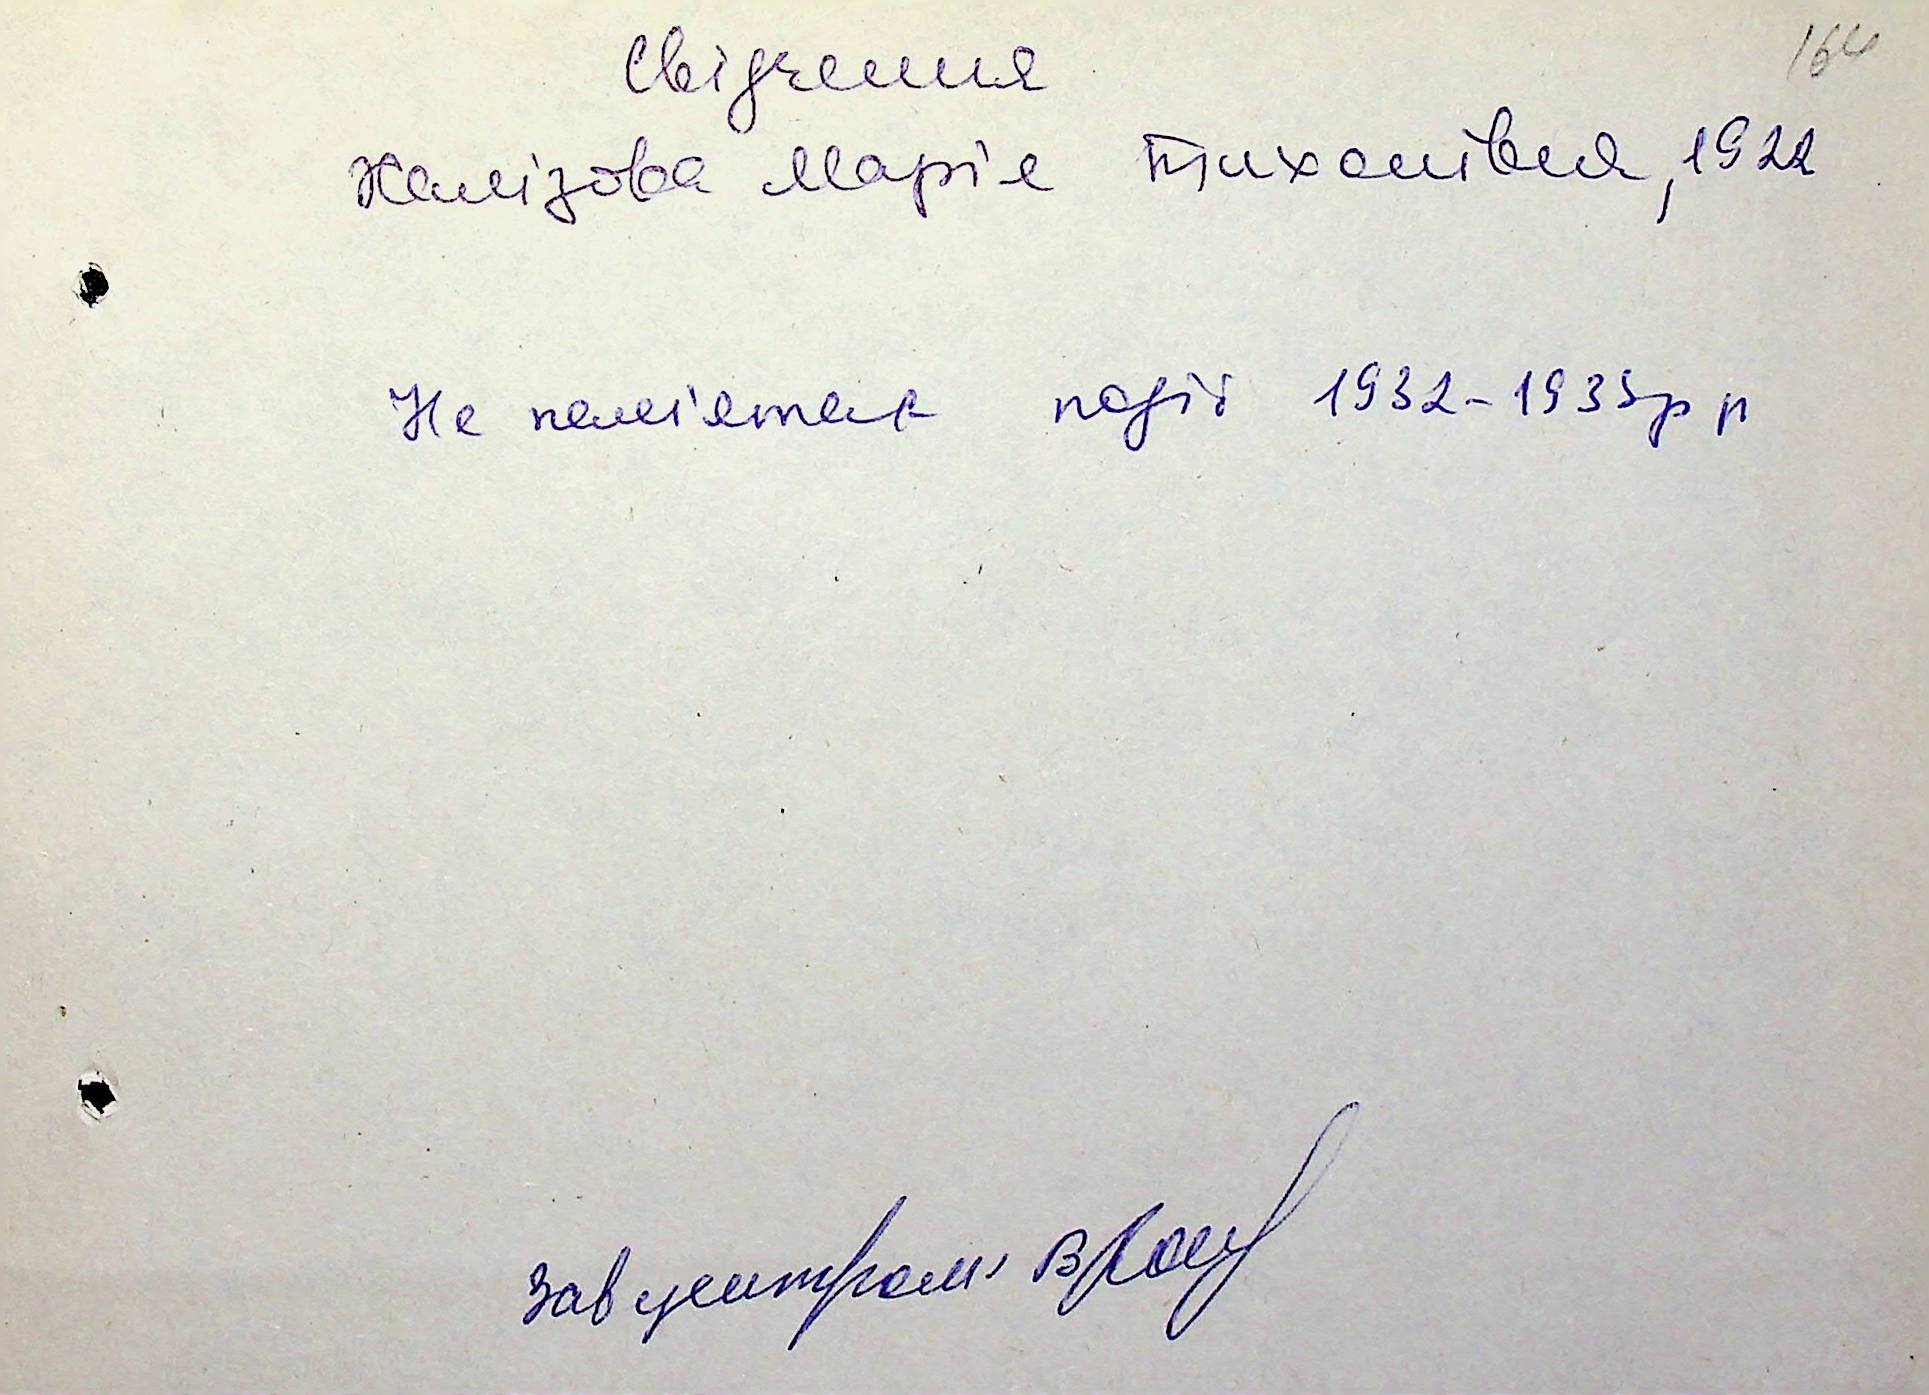 164
Свідчення
Марія Тихонівна, 1922
Не пам'ятає подій 1932-1933рр
Зав центром